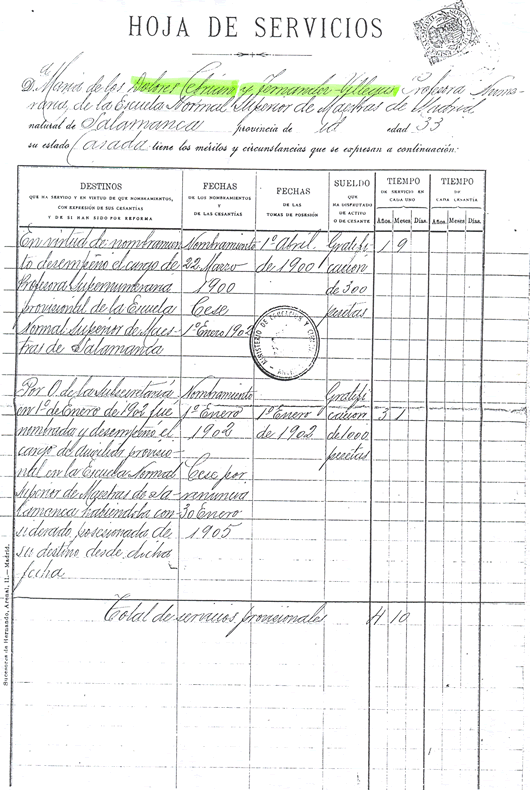 HOJA DE SERVICIOS
Dª Maria de los Dolores Cebrián y Fernandez-Villegas Profesora Nume-
raria, de la Escuela Normal Superior de Maestras de Madrid
natural de Salamanca provincia de id edad 33
su estado Casada tiene los méritos y circunstancias que se expresan a continuación:
DESTINOS
QUE HA SERVIDO Y EN VIRTUD DE QUE NOMBRAMIENTOS,
CON EXPRESIÓN DE SUS CESANTÍAS
Y DE SI HAN SIDO POR REFORMA
FECHAS
DE LOS NOMBRAMIENTOS
Y
DE LAS CESANTÍAS
FECHAS
DE LAS
TOMAS DE POSESIÓN
SUELDO
QUE HA DISFRUTADO
DE ACTIVO
O DE CESANTE
TIEMPO
DE SERVICIO EN
CADA UNO
Años. Meses. Días.
TIEMPO
DE
CADA CESANTÍA
Años. Meses. Días.
En virtud de nombramien
to desempeñó el cargo de
Profesora Supernumeraria
provisional de la Escuela
Normal Superior de Maes-
tras de Salamanca
Nombramiento
22 Marzo
1900
Cese
1º Enero 1902
1º Abril.
de 1900
Gratifi
cación
de 300
pesetas
1 9
Por O. de la Subsecretaría
en 1º de Enero de 1902 fue
nombrada y desempeñó el
cargo de auxiliar provisio-
nal en la Escuela Normal
Superior de Maestras de Sa-
lamanca habiendola con-
siderado posesionada de
su destino desde dicha
fecha
Nombramiento
1º Enero
1902
Cese por
renuncia
30 Enero
1905
1º Enero
de 1902
Gratifi
cación
de 1000
pesetas
3 1
Total de servicios provisionales 4 10
MINISTERIO DE EDUCACION Y CIENCIA
Sucesores de Hernando, Arenal, 11.—Madrid.